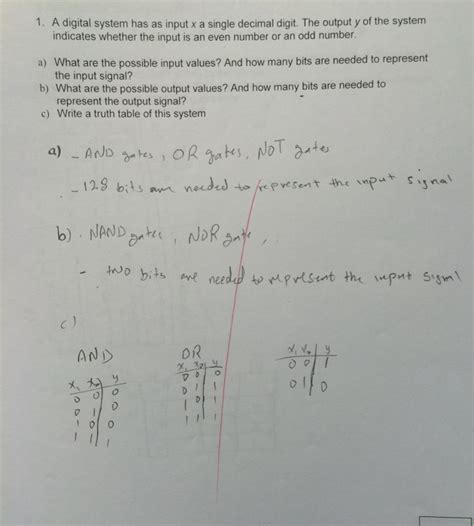 1. A digital system has as input x a single decimal digit. The output y of the system
indicates whether the input is an even number or an odd number.
a) What are the possible input values? And how many bits are needed to represent
the input signal?
b) What are the possible output values? And how many bits are needed to
represent the output signal?
c) Write a truth table of this system
a) - AND gates, OR gates, NOT gates
- 128 bits are needed to represent the input signal
b). NAND gates, NOR gate,
- two bits are needed to represent the input signal
c)
AND
x₁ x₀ y
0 0 0
0 1 0
1 0 0
1 1 1
OR
x₁ x₀ y
0 0 0
0 1 1
1 0 1
1 1 1
x₁ x₀ y
0 0 1
0 1 0